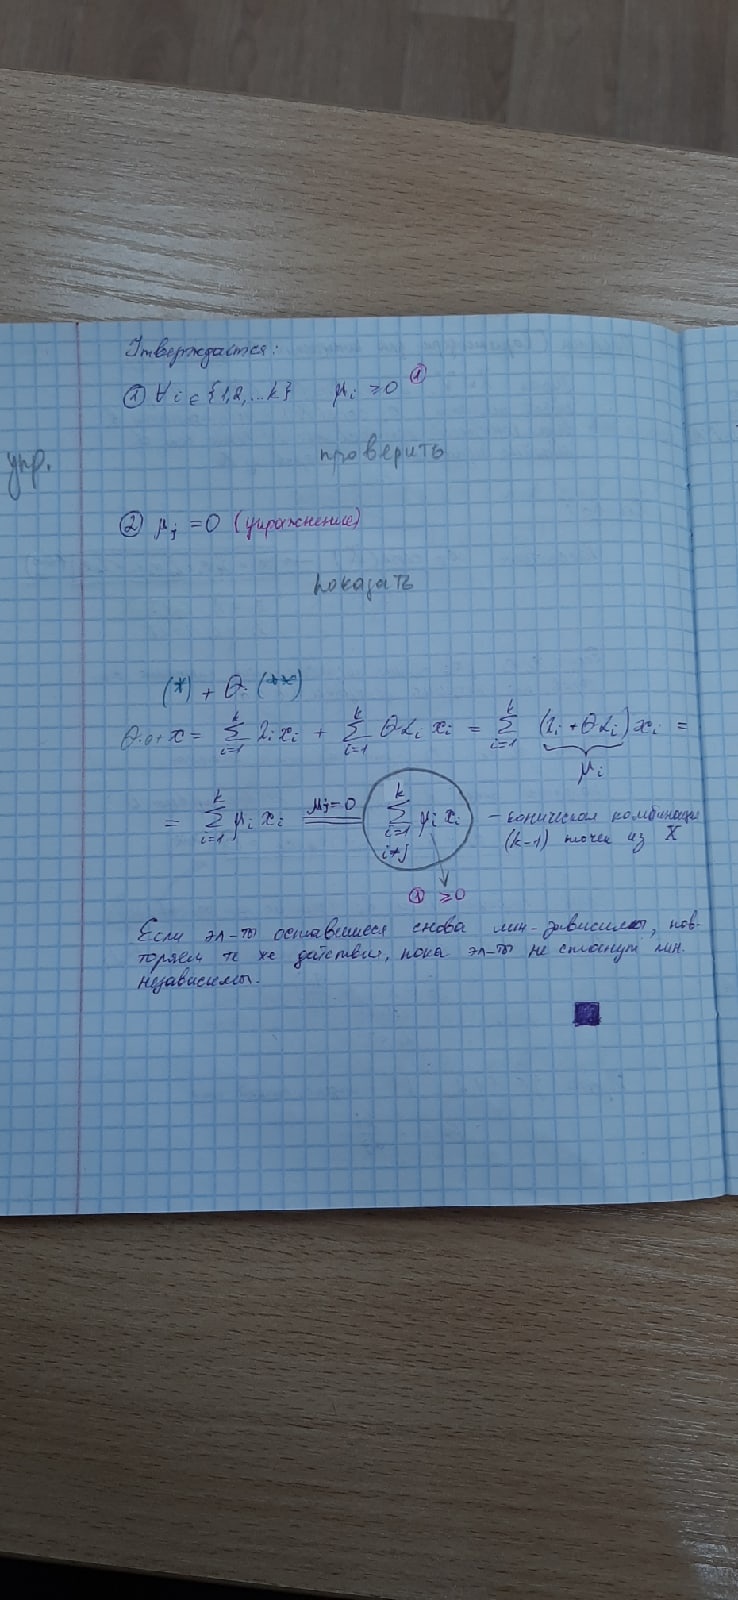 Утверждается:
① ∀ i ∈ {1,2,...k} μᵢ ≥ 0 ①
упр. проверить
② μⱼ = 0 (упражнение)
показать
(*) + θ·(**)
θ·0 + x = ∑ᵢ₌₁ᵏ λᵢxᵢ + ∑ᵢ₌₁ᵏ θαᵢxᵢ = ∑ᵢ₌₁ᵏ (λᵢ + θαᵢ)xᵢ =
μᵢ
= ∑ᵢ₌₁ᵏ μᵢxᵢ = (μⱼ=0) ∑ᵢ₌₁ᵏ, i≠j μᵢxᵢ – коническая комбинация
(k-1) точек из X
① ≥ 0
Если эл-ты оставшиеся снова лин. зависимы, пов-
торяем те же действия, пока эл-ты не станут лин.
независимы.